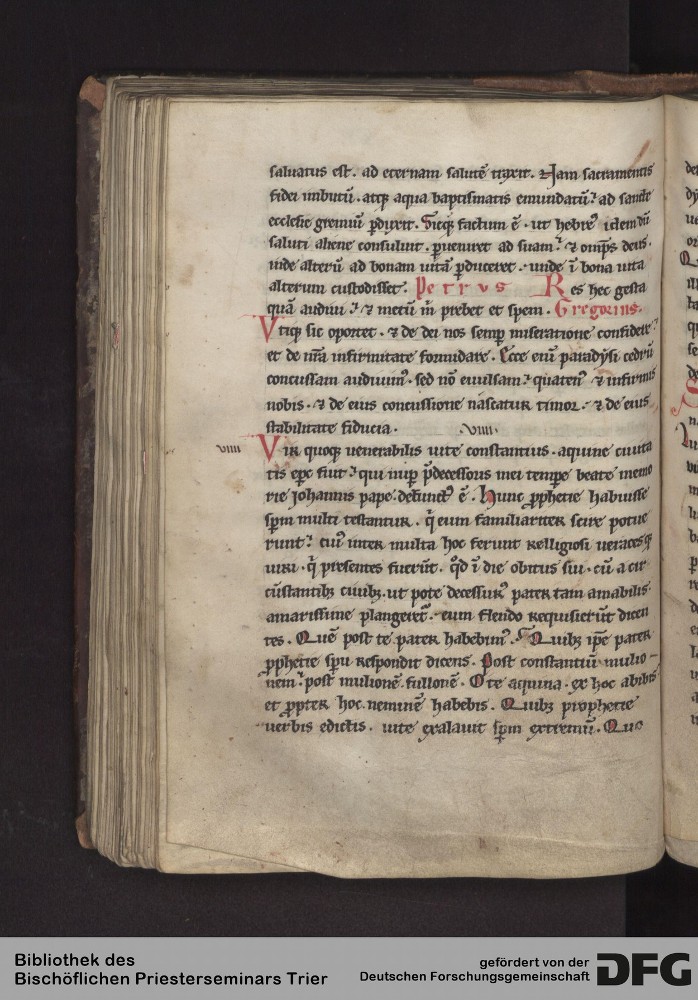 saluatus est. ad eternam salutē traxit. Nam sacramentis
fidei imbutū. atq; aqua baptismatis emundatū. ad sancte
ecclesie gremiū pduxit. Sicq; factum ē. ut hebre⁹ idem dū
saluti aliene consuluit. pueniret ad suam. ⁊ omps deus.
inde alterū ad bonam uitā pduceret. unde ī bona uita
alterum custodisset. Petrus Res hec gesta
quā audiui. ⁊ metū m̄ prebet et spem. Gregorius.
Vtiq; sic oportet. ⁊ de dei nos semp miseratione confidere.
et de nr̄a infirmitate formidare. Ecce enī paradysi cedrū
concussam audiuim⁹. sed nō euulsam. quaten⁹ ⁊ infirmis
nobis. ⁊ de eius concussione nascatur timor. ⁊ de eius
stabilitate fiducia. VIIII.
VIIII Vir quoq; uenerabilis uite constantius. aquine ciuita
tis epc fuit. qui nup pdecessoris mei tempe beate memo
rie Johannis pape. defunct⁹ ē. Hunc pphetie habuisse
spm multi testantur. q̄ eum familiariter scire potue
runt. cui⁹ inter multa hoc ferunt relligiosi ueracesq;
uiri. q̄ presentes fuerūt. qd ī die obitus sui. cū a cir
cūstantib; ciuib; ut pote decessur⁹ pater tam amabilis.
amarissime plangeret. eum flendo requisierūt dicen
tes. Quē post te pater habebim⁹. Quib; ipe pater
pphetie spu respondit dicens. Post constantiū mulio-
nem. post mulionē. fullonē. O te aquina. ex hoc abibis
et ppter hoc. neminē habebis. Quib; prophetie
uerbis edictis. uite exalauit spm extremū. Quo
Bibliothek des
Bischöflichen Priesterseminars Trier
gefördert von der
Deutschen Forschungsgemeinschaft DFG